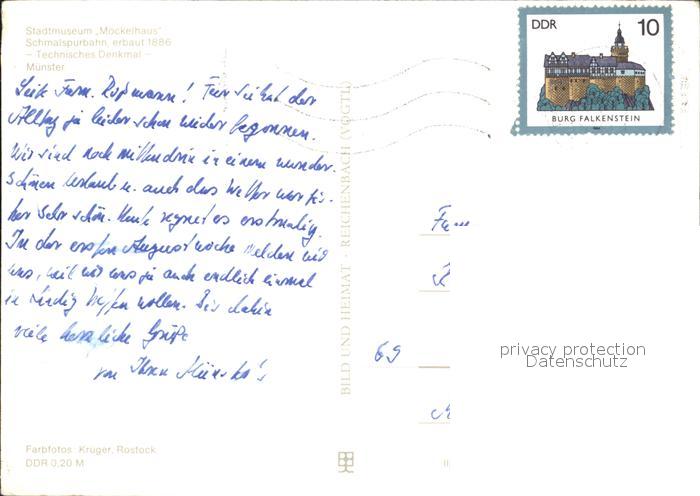 Stadtmuseum „Möckelhaus"
Schmalspurbahn, erbaut 1886
– Technisches Denkmal –
Münster
DDR 10
BURG FALKENSTEIN
Fam. Roßmann! Für Sie hat der
Alltag ja leider schon wieder begonnen.
Wir sind noch mittendrin in einem wunder-
schönen Urlaub u. auch das Wetter war bis-
her sehr schön. Heute regnet es erstmalig.
In der ersten Augustwoche melden wir
uns, weil wir uns ja auch endlich einmal
in treffen wollen. Bis dahin
viele herzliche Grüße
von Ihren
BILD UND HEIMAT · REICHENBACH (VOGTL)
69
privacy protection
Datenschutz
Farbfotos: Krüger, Rostock
DDR 0,20 M